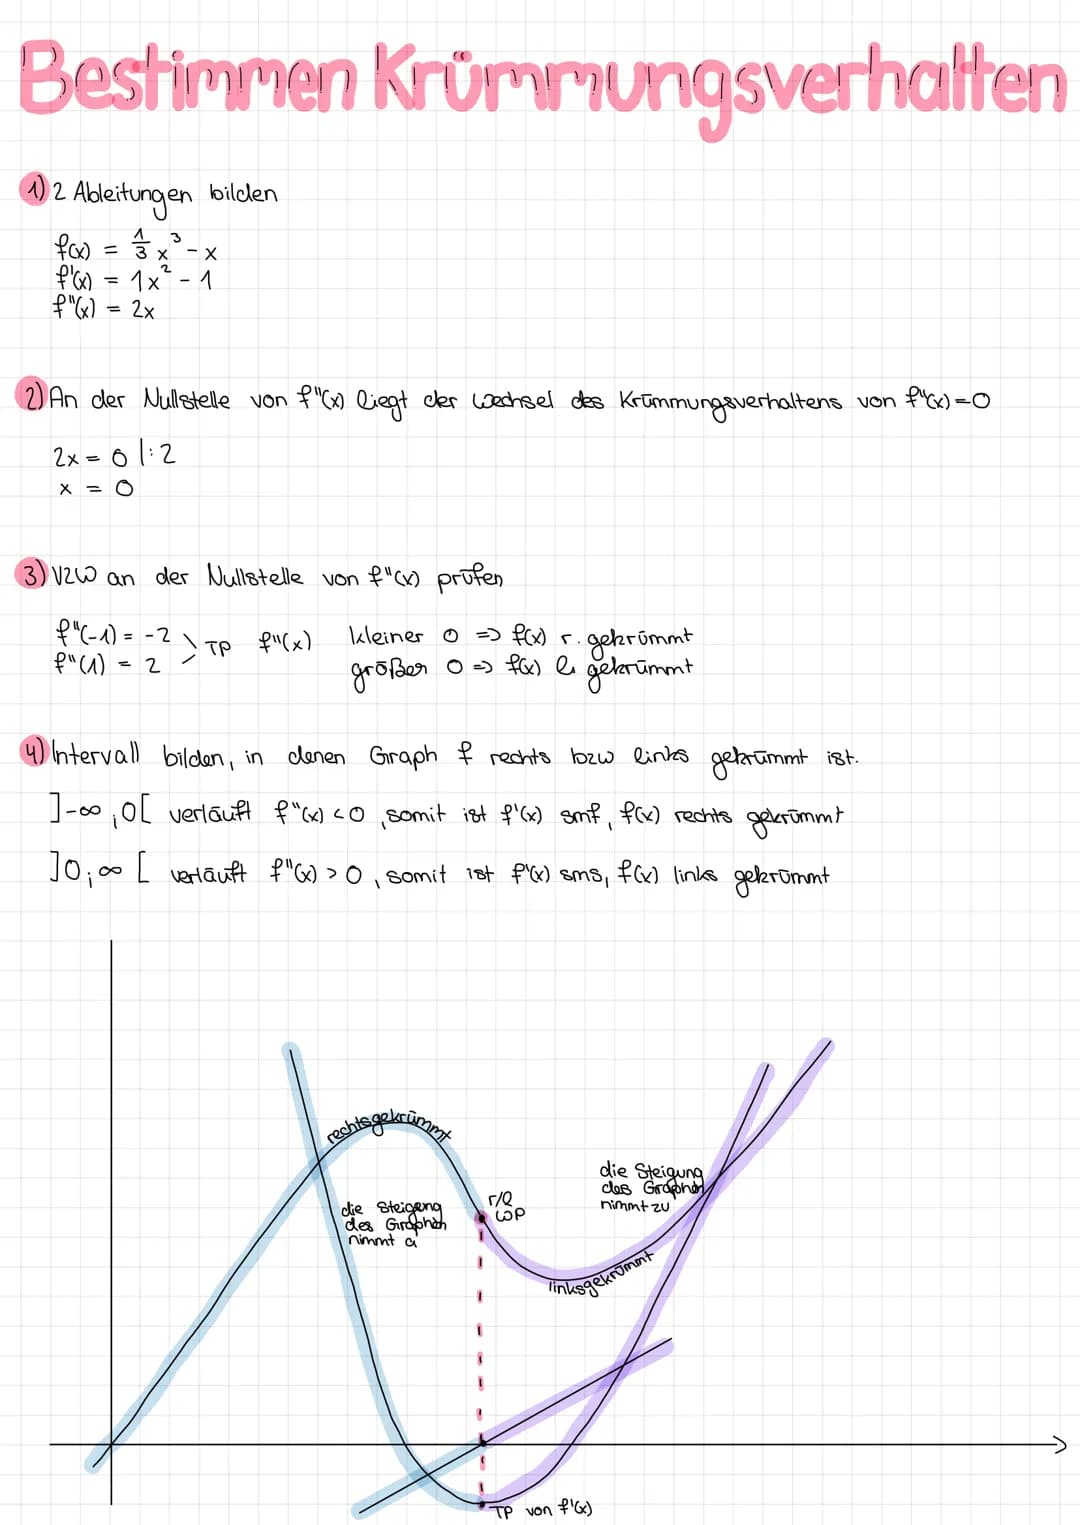 Bestimmen Krümmungsverhalten
1) 2 Ableitungen bilden
f(x) = 1/3 x³ - x
f'(x) = 1x² - 1
f"(x) = 2x
2) An der Nullstelle von f"(x) liegt der Wechsel des Krümmungsverhaltens von f"(x)=0
2x = 0 |:2
x = 0
3) VZW an der Nullstelle von f"(x) prüfen
f"(-1) = -2 > TP f"(x) kleiner 0 => f(x) r. gekrümmt
f"(1) = 2 größer 0 => f(x) l. gekrümmt
4) Intervall bilden, in denen Graph f rechts bzw links gekrümmt ist.
]-∞;0[ verläuft f"(x) <0, somit ist f'(x) smf, f(x) rechts gekrümmt
]0;∞[ verläuft f"(x) > 0, somit ist f'(x) sms, f(x) links gekrümmt
rechtsgekrümmt
die Steigung
des Graphen
nimmt zu
r/l
WP
die Steigung
des Graphen
nimmt a
linksgekrümmt
TP von f'(x)